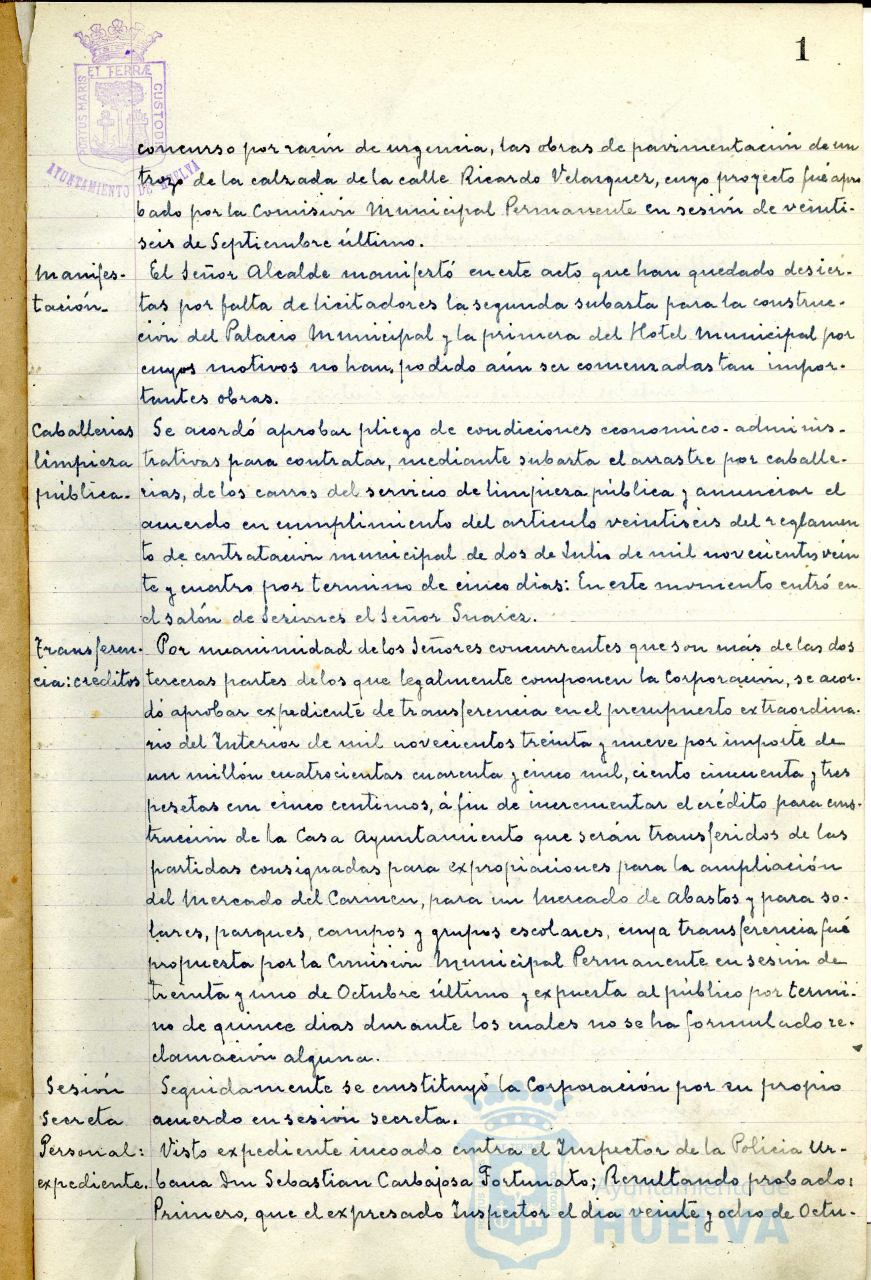 1
PORTUS MARIS ET TERRÆ CUSTODIA
AYUNTAMIENTO DE HUELVA
concurso por razón de urgencia, las obras de pavimentación de un
trozo de la calzada de la calle Ricardo Velazquez, cuyo proyecto fué apro
bado por la Comisión Municipal Permanente en sesión de veinti-
seis de Septiembre último.
Manifes-
tación-
El Señor Alcalde manifestó en este acto que han quedado desier-
tas por falta de licitadores la segunda subasta para la construc-
ción del Palacio Municipal y la primera del Hotel Municipal por
cuyos motivos no han podido aún ser comenzadas tan impor-
tantes obras.
Caballerias
limpieza
pública-
Se acordó aprobar pliego de condiciones economico-adminis-
trativas para contratar, mediante subasta el arrastre por caballe-
rias, de los carros del servicio de limpieza pública y anunciar el
acuerdo en cumplimiento del articulo veintiseis del reglamen
to de contratación municipal de dos de Julio de mil novecientos vein
te y cuatro por termino de cinco dias: En este momento entró en
el salón de Sesiones el Señor Suarez.
Transferen-
cia: créditos
Por unanimidad de los Señores concurrentes que son más de las dos
terceras partes de los que legalmente componen la Corporación, se acor-
dó aprobar expediente de transferencia en el presupuesto extraordina-
rio del Interior de mil novecientos treinta y nueve por importe de
un millón cuatrocientas cuarenta y cinco mil, ciento cincuenta y tres
pesetas con cinco centimos, á fin de incrementar el crédito para cons-
trucción de la Casa Ayuntamiento que serán transferidos de las
partidas consignadas para expropiaciones para la ampliación
del Mercado del Carmen, para un Mercado de Abastos y para so-
lares, parques, campos y grupos escolares, cuya transferencia fué
propuesta por la Comision Municipal Permanente en sesión de
treinta y uno de Octubre último y expuesta al público por termi-
no de quince dias durante los cuales no se ha formulado re-
clamación alguna.
Sesión
Secreta
Seguidamente se constituyó la Corporación por su propio
acuerdo en sesión secreta.
Personal:
expediente.
Visto expediente incoado contra el Inspector de la Policia Ur-
bana Don Sebastian Carbajosa Fortunato; Resultando probado:
Primero, que el expresado Inspector el dia veinte y ocho de Octu-
Ayuntamiento de
HUELVA